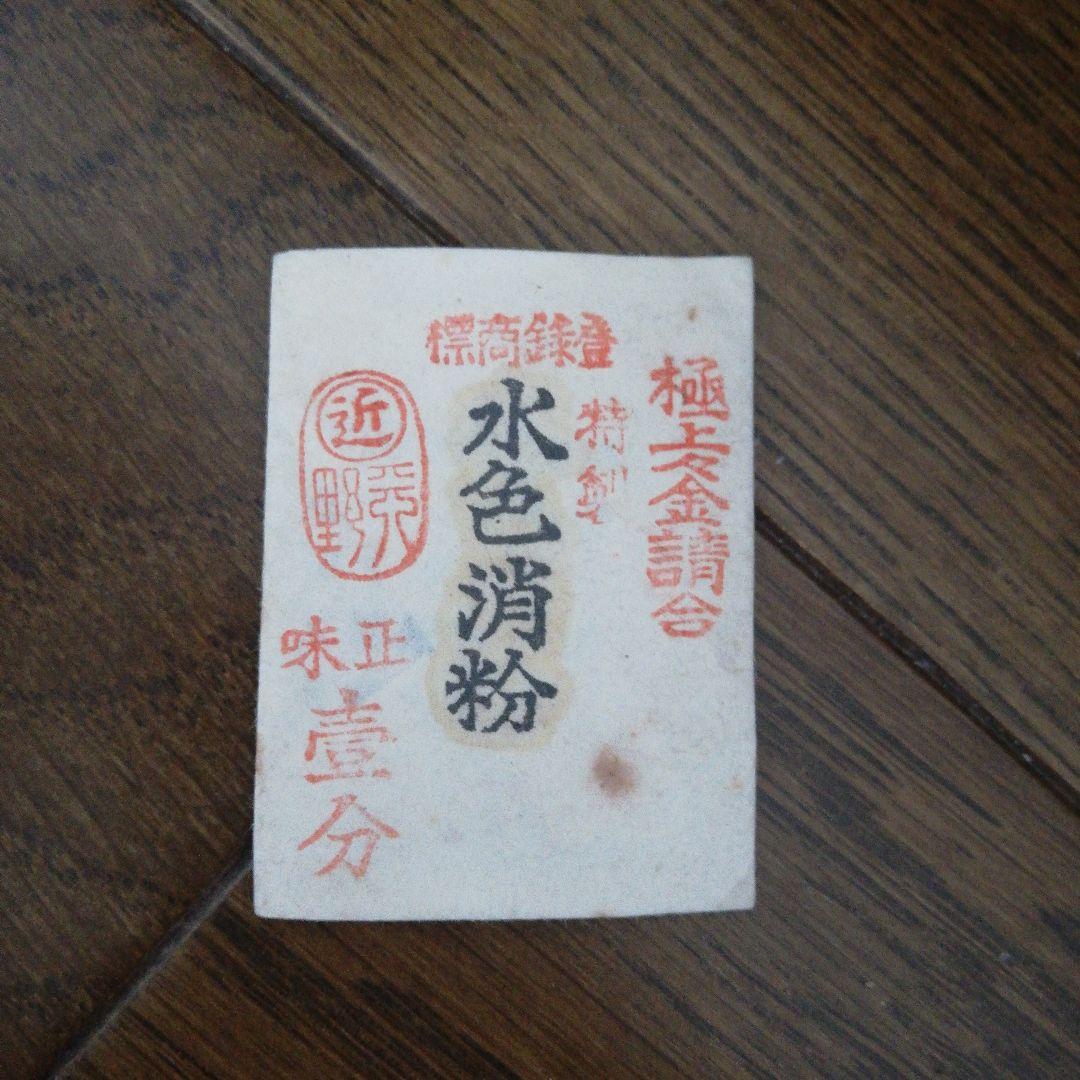 登錄商標
極上々金請合
特製
水色消粉
近
正味
壹分